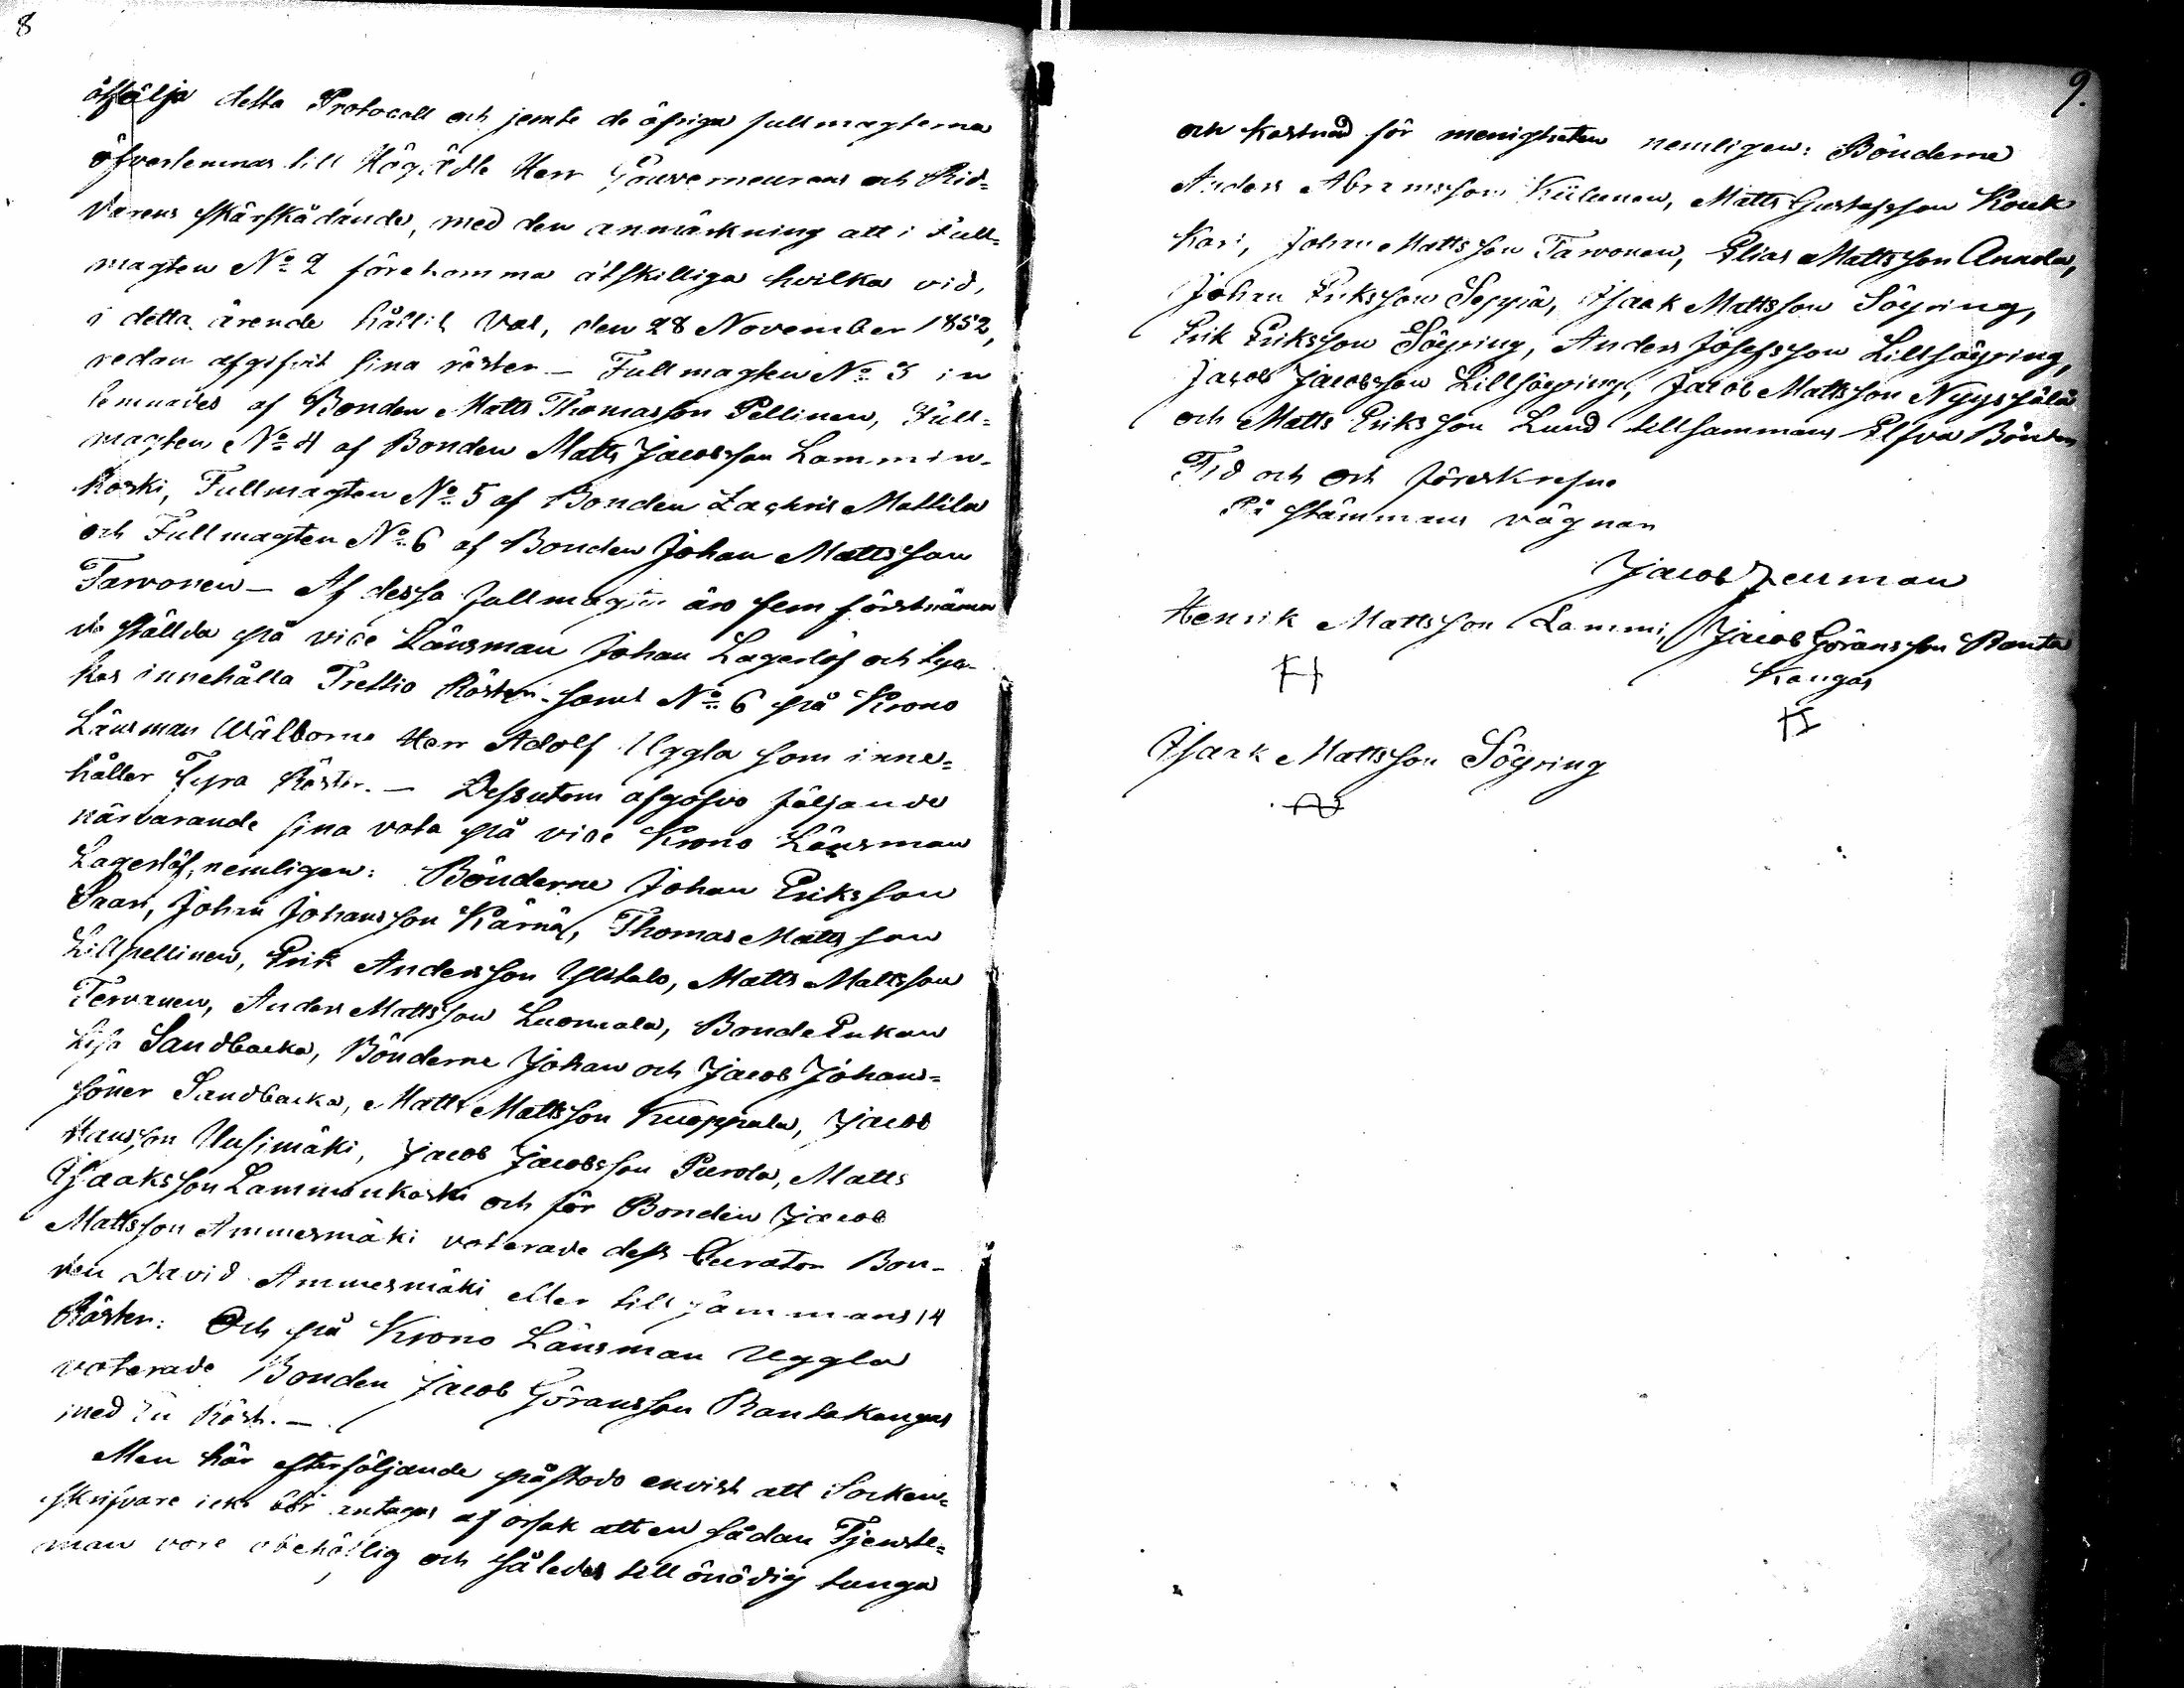 8
åtfölja detta Protocoll och jemte de öfriga fullmagterna
öfverlemnas till Högädle Herr Gouverneurens och Rid-
darens skärskådande, med den anmärkning att i Full-
magten No 2 förekomma åtskilliga hvilka vid,
i detta ärende hållit Val, den 28 November 1852,
redan afgifvit sina röster – Fullmagten No 3 in
lemnades af Bonden Matts Thomasson Pellinen, Full-
magten No 4 af Bonden Matts Jacobsson Lammin-
koski, Fullmagten No 5 af Bonden Zachris Mattila
och Fullmagten No 6 af Bonden Johan Mattsson
Tarvonen – Af dessa fullmagter äro fem förstnämn
da ställda på vice Länsman Johan Lagerlöf och
innehålla Trettio Röster. samt No 6 på Krono
Länsman Wälborne Herr Adolf Uggla som inne-
håller Fyra Röster. – Dessutom afgåfvo följande
närvarande sina vota på vice Krono Länsman
Lagerlöf, nemligen: Bönderne Johan Eriksson
Saari, Johan Johansson Kärnä, Thomas Mattsson
Lillpellinen, Erik Andersson Ylitalo, Matts Mattsson
Tervanen, Anders Mattsson Luomala, Bonde Enkan
Lisa Sandbacka, Bönderne Johan och Jacob Johans-
söner Sandbacka, Matts Mattsson Kuoppala, Jacob
Hansson Uusimäki, Jacob Jacobsson Purola, Matts
Isaaksson Lamminkoski och för Bonden Jacob
Mattsson Ammesmäki voterade dess Curator Bon-
den David Ammesmäki eller tillsammans 14
Röster: Och på Krono Länsman Uggla
voterade Bonden Jacob Göransson Rantakangas
med En Röst. –
Men här efterföljande påstodo envist att Socken-
skrifvare icke bör antagas af orsak att en sådan Tjenste-
man vore obehöflig och således till onödig tunga
9.
och kostnad för menigheten nemligen: Bönderne
Anders Abramsson Kiilunen, Matts Gustafsson Kouk
kari, Johan Mattsson Tarvonen, Elias Mattsson Annola,
Johan Eriksson Seppä, Isaak Mattsson Söyring,
Erik Eriksson Söyring, Anders Josefsson Lillsöyring,
Jacob Jacobsson Lillsöyring, Jacob Mattsson Nyyssälä
och Matts Eriksson Lund tillsammans Elfva Bönder
Tid och ort föreskrefne
På stämmans vägnar
Jacob
Henrik Mattsson Lammi, Jacob Göransson Ranta
Kangas
Isaak Mattsson Söyring